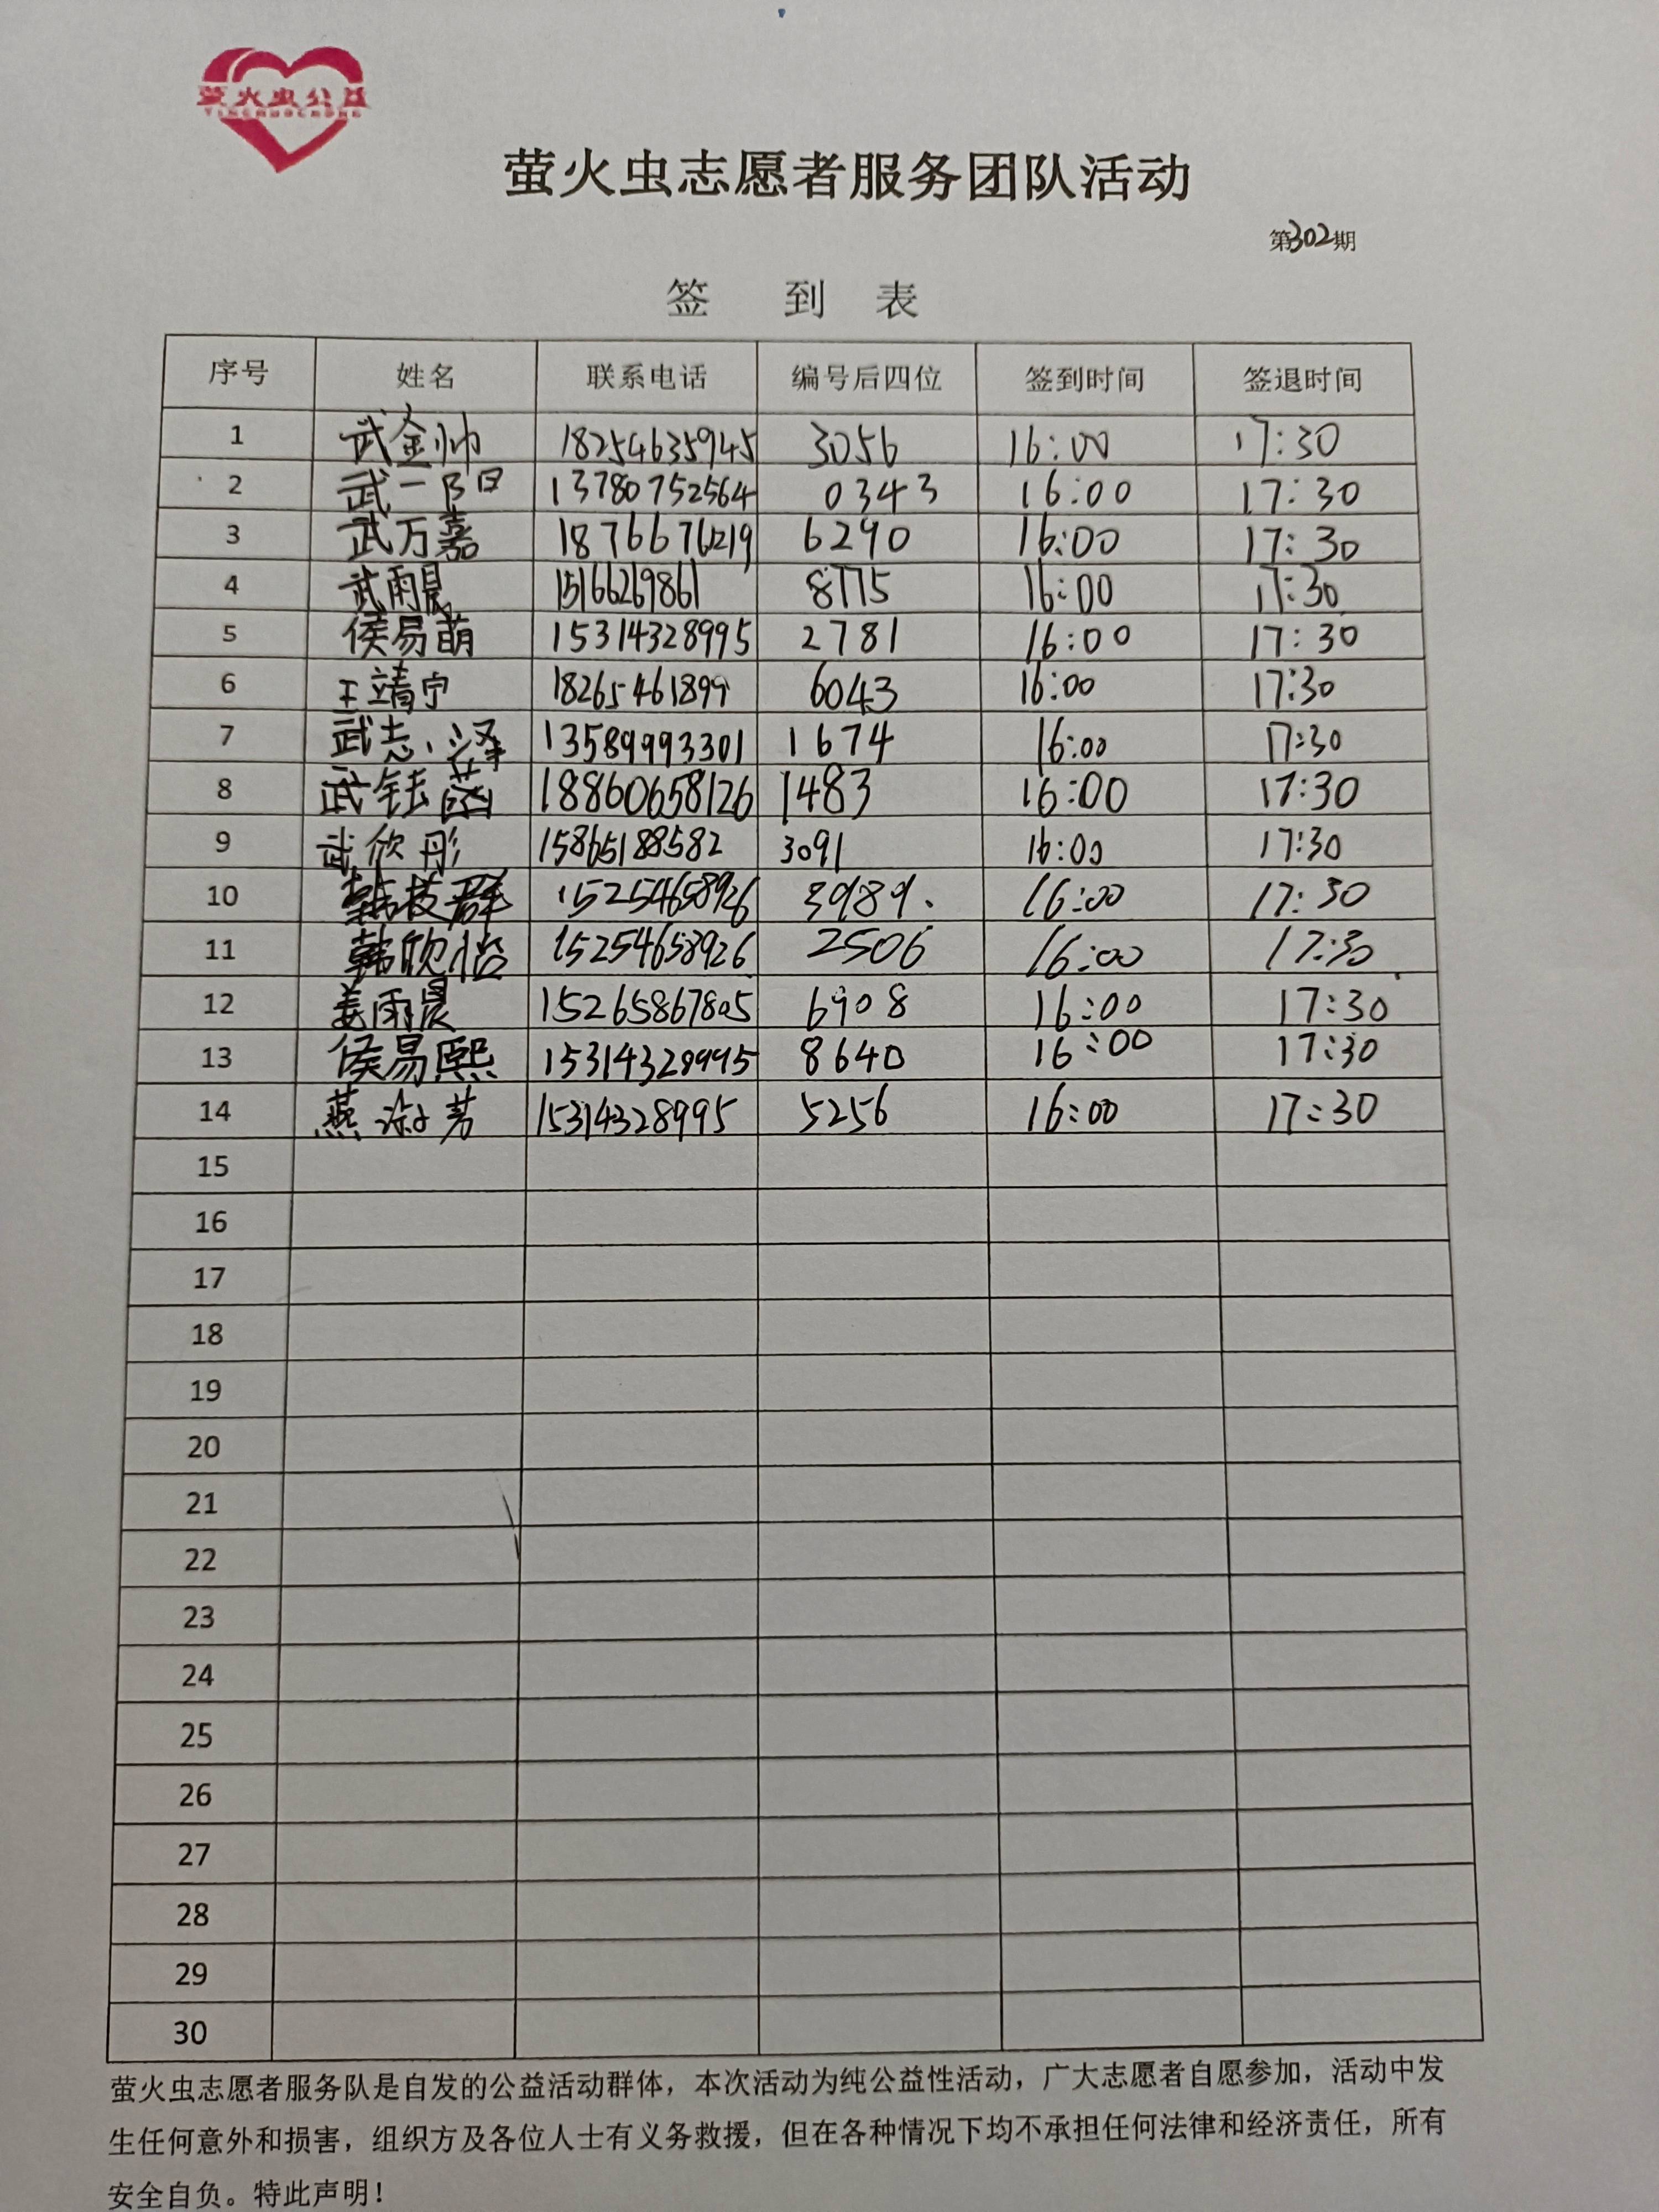 萤火虫公益
YINGHUOCHONG
萤火虫志愿者服务团队活动
第302期
签 到 表
序号 姓名 联系电话 编号后四位 签到时间 签退时间
1 武金帅 18254635945 3056 16:00 17:30
2 武一阳 13780752564 0343 16:00 17:30
3 武万嘉 18766761219 6290 16:00 17:30
4 武雨晨 15166269861 8775 16:00 17:30
5 侯易萌 15314328995 2781 16:00 17:30
6 王靖宁 18265461899 6043 16:00 17:30
7 武志泽 13589993301 1674 16:00 17:30
8 武钰菡 18860658126 1483 16:00 17:30
9 武欣彤 15865188582 3091 16:00 17:30
10 韩枝群 15254658926 3989. 16:00 17:30
11 韩欣怡 15254658926 2506 16:00 17:30
12 姜雨晨 15265867805 6908 16:00 17:30
13 侯易熙 15314328995 8640 16:00 17:30
14 燕淑芳 15314328995 5256 16:00 17:30
15
16
17
18
19
20
21
22
23
24
25
26
27
28
29
30
萤火虫志愿者服务队是自发的公益活动群体，本次活动为纯公益性活动，广大志愿者自愿参加，活动中发
生任何意外和损害，组织方及各位人士有义务救援，但在各种情况下均不承担任何法律和经济责任，所有
安全自负。特此声明！